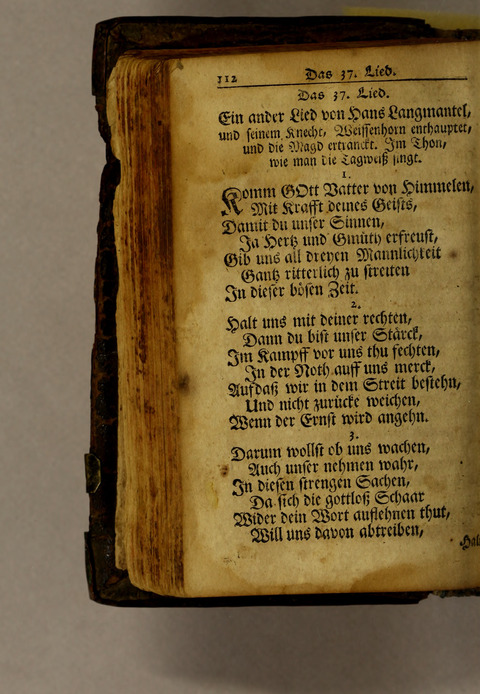 112 Das 37. Lied.
Das 37. Lied.
Ein ander Lied von Hans Langmantel,
und seinem Knecht, Weissenhorn enthauptet,
und die Magd ertranckt. Im Thon,
wie man die Tagweiß singt.
1.
Komm GOtt Vatter von Himmelen,
Mit Krafft deines Geists,
Damit du unser Sinnen,
Ja Hertz und Gmüth erfreust,
Gib uns all dreyen Mannlichkeit
Gantz ritterlich zu streiten
In dieser bösen Zeit.
2.
Halt uns mit deiner rechten,
Dann du bist unser Stärck,
Im Kampff vor uns thu fechten,
In der Noth auff uns merck,
Aufdaß wir in dem Streit bestehn,
Und nicht zurücke weichen,
Wenn der Ernst wird angehn.
3.
Darum wollst ob uns wachen,
Auch unser nehmen wahr,
In diesen strengen Sachen,
Da sich die gottloß Schaar
Wider dein Wort auflehnen thut,
Will uns davon abtreiben,